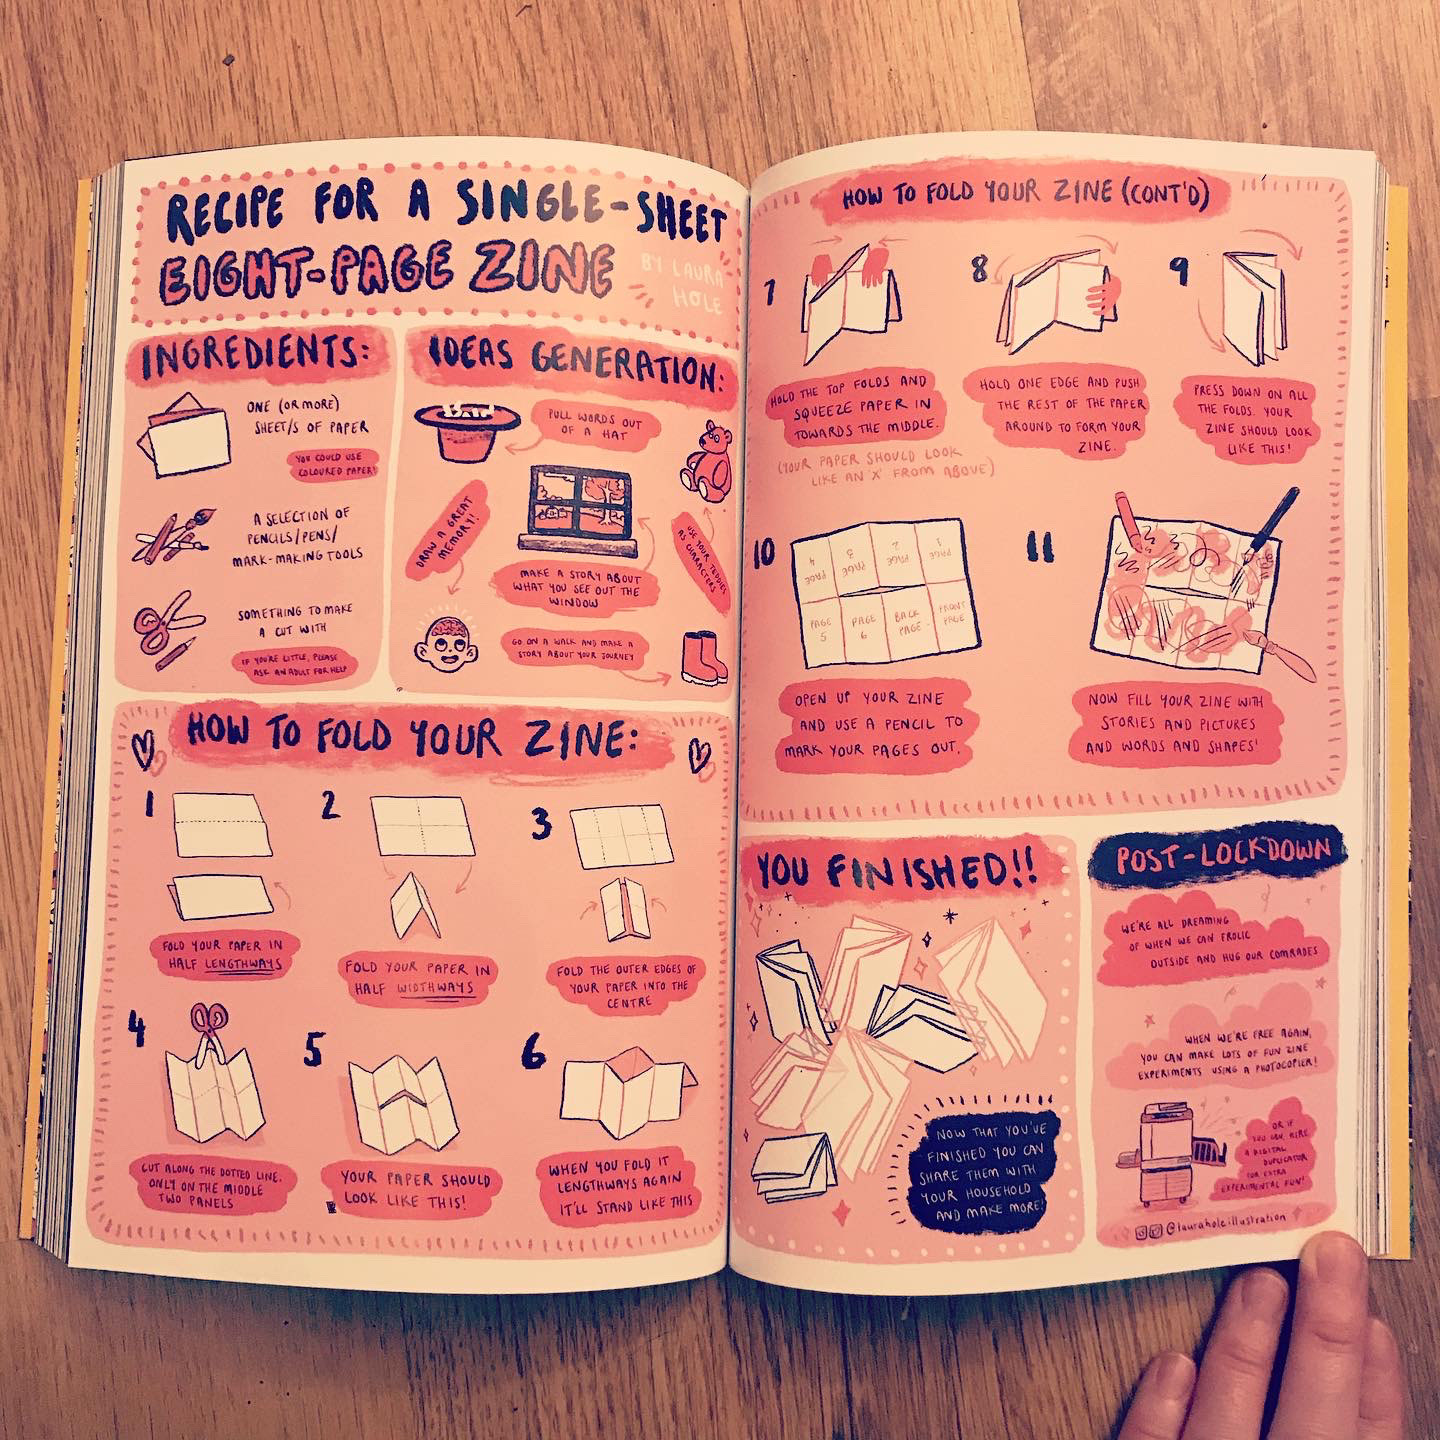 RECIPE FOR A SINGLE-SHEET
EIGHT-PAGE ZINE
BY LAURA
HOLE
INGREDIENTS:
ONE (OR MORE)
SHEET/S OF PAPER
YOU COULD USE
COLOURED PAPER!
A SELECTION OF
PENCILS/PENS/
MARK-MAKING TOOLS
SOMETHING TO MAKE
A CUT WITH
IF YOU'RE LITTLE, PLEASE
ASK AN ADULT FOR HELP
IDEAS GENERATION:
PULL WORDS OUT
OF A HAT
DRAW A GREAT
MEMORY!
USE YOUR TEDDIES
AS CHARACTERS
MAKE A STORY ABOUT
WHAT YOU SEE OUT THE
WINDOW
GO ON A WALK AND MAKE A
STORY ABOUT YOUR JOURNEY
HOW TO FOLD YOUR ZINE:
1
FOLD YOUR PAPER IN
HALF LENGTHWAYS
2
FOLD YOUR PAPER IN
HALF WIDTHWAYS
3
FOLD THE OUTER EDGES OF
YOUR PAPER INTO THE
CENTRE
4
CUT ALONG THE DOTTED LINE.
ONLY ON THE MIDDLE
TWO PANELS
5
YOUR PAPER SHOULD
LOOK LIKE THIS!
6
WHEN YOU FOLD IT
LENGTHWAYS AGAIN
IT'LL STAND LIKE THIS
HOW TO FOLD YOUR ZINE (CONT'D)
7
HOLD THE TOP FOLDS AND
SQUEEZE PAPER IN
TOWARDS THE MIDDLE.
(YOUR PAPER SHOULD LOOK
LIKE AN 'X' FROM ABOVE)
8
HOLD ONE EDGE AND PUSH
THE REST OF THE PAPER
AROUND TO FORM YOUR
ZINE.
9
PRESS DOWN ON ALL
THE FOLDS. YOUR
ZINE SHOULD LOOK
LIKE THIS!
10
PAGE 4
PAGE 3
PAGE 2
PAGE 1
PAGE 5
PAGE 6
BACK PAGE
FRONT PAGE
OPEN UP YOUR ZINE
AND USE A PENCIL TO
MARK YOUR PAGES OUT.
11
NOW FILL YOUR ZINE WITH
STORIES AND PICTURES
AND WORDS AND SHAPES!
YOU FINISHED!!
NOW THAT YOU'VE
FINISHED YOU CAN
SHARE THEM WITH
YOUR HOUSEHOLD
AND MAKE MORE!
POST-LOCKDOWN
WE'RE ALL DREAMING
OF WHEN WE CAN FROLIC
OUTSIDE AND HUG OUR COMRADES
WHEN WE'RE FREE AGAIN,
YOU CAN MAKE LOTS OF FUN ZINE
EXPERIMENTS USING A PHOTOCOPIER!
OR IF
YOU CAN, HIRE
A DIGITAL
DUPLICATOR
FOR EXTRA
EXPERIMENTAL FUN!
@laurahole.illustration